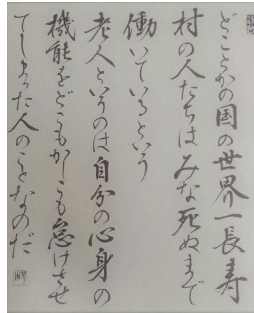 どことかの国の世界一長寿
村の人たちはみな死ぬまで
働いているという
老人というのは自分の心身の
機能をどこもかしこも怠けさせ
てしまった人のことなのだ